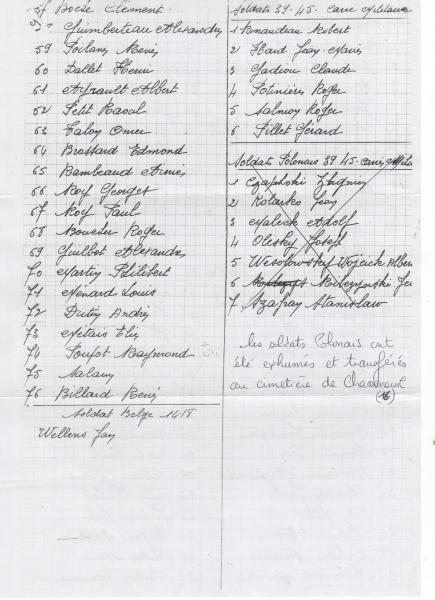 57 Boese Clément
58 Guimberteau Alexandre
59 Poilane René
60 Dallet Henri
61 Ayrault Albert
62 Petit Raoul
63 Talon Omer
64 Brossard Edmond
65 Bambeaud Aimé
66 Roy Georges
67 Roy Paul
68 Boucher Roger
69 Guilbot Alexandre
70 Martin Philibert
71 Menard Louis
72 Dutin André
73 Métais Elie
74 Poupot Raymond
75 Nalau
76 Billard René
Soldat Belge 14 18
Wellens Jan
Soldats 39-45. Carré Militaire
1 Renaudeau Robert
2 Huard Jean-Marie
3 Gadiou Claude
4 Potinière Roger
5 Salmon Roger
6 Fillet Gérard
Soldats Polonais 39 45 - carré
1
2 Kolarko Jean
3 Malick Adolf
4 Olesky Joseph
5 Wesolowsky Wojciek Alber
6 Milczynski
7 Szafray Stanislaw
les soldats Polonais ont
été exhumés et transférés
au cimetière de
16